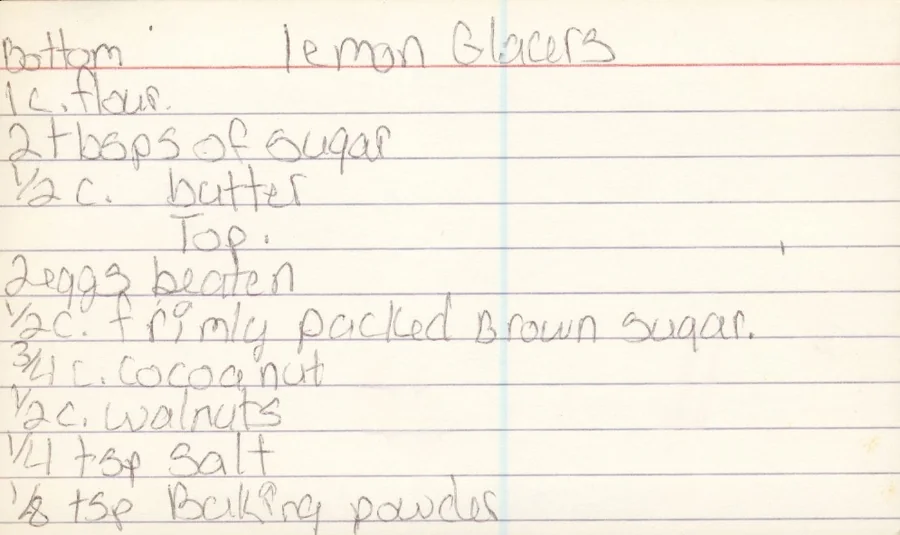 Bottom lemon Glacers
1 c. flour.
2 tbsps of sugar
1/2 c. butter
Top.
2 eggs beaten
1/2 c. frimly packed Brown sugar.
3/4 c. cocoanut
1/2 c. walnuts
1/4 tsp salt
1/8 tsp Baking powder